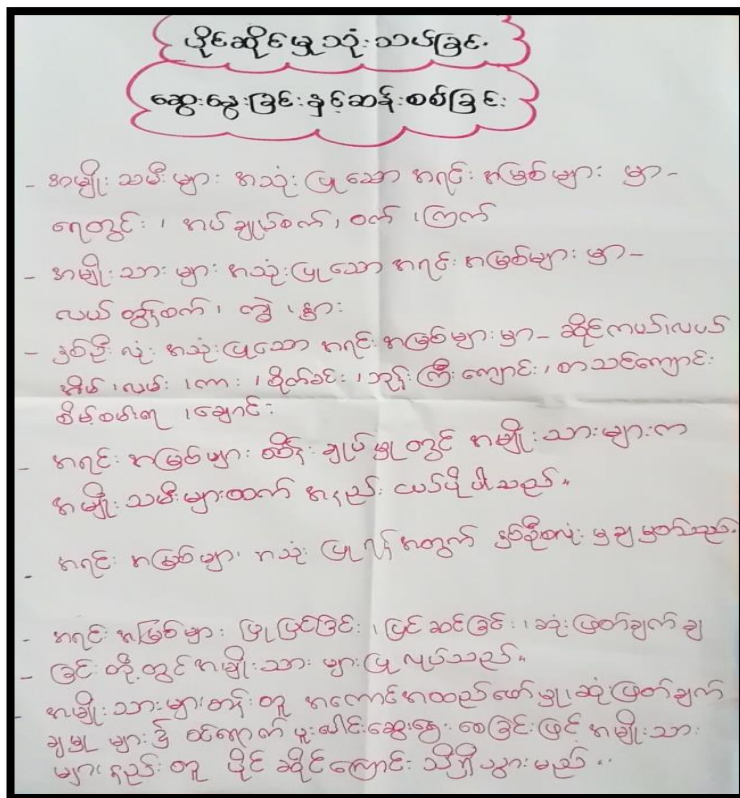 ပိုင်ဆိုင်မှုသုံးသပ်ခြင်း
ဆွေးနွေးခြင်းနှင့်ဆန်းစစ်ခြင်း
- အမျိုးသမီးများ အသုံးပြုသော အရင်းအမြစ်များ မှာ-
ရေတွင်း၊ အပ်ချုပ်စက်၊ ဝက်၊ ကြက်
- အမျိုးသားများ အသုံးပြုသော အရင်းအမြစ်များ မှာ-
လယ်ထွန်စက်၊ ကျွဲ၊ နွား
- နှစ်ဦးလုံး အသုံးပြုသော အရင်းအမြစ်များမှာ- ဆိုင်ကယ်၊ လယ်
အိမ်၊ လမ်း၊ ကား၊ စိုက်ခင်း၊ ဘုန်းကြီးကျောင်း၊ စာသင်ကျောင်း
စိမ့်စမ်းရေ၊ ချောင်း
- အရင်းအမြစ်များ ထိန်းချုပ်မှုတွင် အမျိုးသားများက
အမျိုးသမီးများထက် အနည်းငယ်ပိုပါသည်။
- အရင်းအမြစ်များ အသုံးပြုရန်အတွက် နှစ်ဦးစလုံး မျှချမှတ်သည်။
- အရင်းအမြစ်များ ပြုပြင်ခြင်း၊ ပြင်ဆင်ခြင်း၊ ဆုံးဖြတ်ချက်ချ
- ခြင်းတို့တွင် အမျိုးသားများပြုလုပ်သည်။
- အမျိုးသားများတန်းတူ အကောင်အထည်ဖော်မှု၊ ဆုံးဖြတ်ချက်
ချမှုများ၌ ဝင်ရောက်ပူးပေါင်းဆွေးနွေးစေခြင်းဖြင့် အမျိုးသား
များနည်းတူ ပိုင်ဆိုင်ကြောင်း သိရှိသွားမည်။